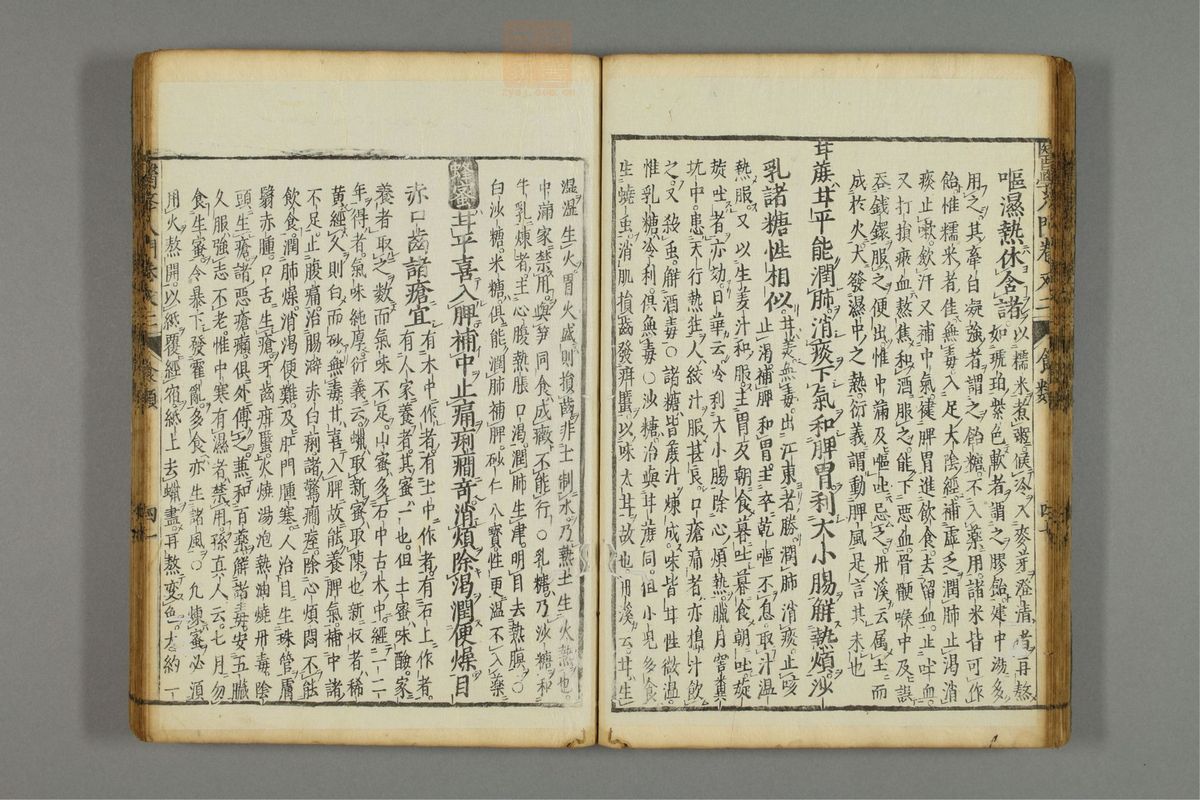 嘔濕熱休含諸 以糯米煮粥候冷入麥芽澄清者再熬
如琥珀紫色軟者謂之膠飴建中湯多
用之其牽白凝強者謂之餳糖不入藥用諸米皆可作
飴惟糯米者佳無毒入足太陰經補虛乏潤肺止渴消
痰止嗽歛汗又補中氣健脾胃進飲食去留血止吐血
又打損瘀血熬焦和酒服之能下惡血骨鯁喉中及誤
吞錢鐶服之便出惟中滿及嘔吐忌之丹溪云属土而
成於火大發濕中之熱衍義謂動脾風是言其末也
甘蔗甘平能潤肺消痰下氣和脾胃利大小腸解熱煩沙
乳諸糖性相似 甘美無毒出江東者勝潤肺消痰止咳
止渴補脾和胃主卒乾嘔不息取汁溫
熱服又以生姜汁和服主胃反朝食暮吐暮食朝吐旋
旋吐者亦効日華云冷利大小腸除心煩熱臘月窖糞
坑中患天行熱狂人絞汁服甚良口瘡痛者亦搗汁飲
之又殺虫解酒毒〇諸糖皆蔗汁煉成味皆甘性微溫
惟乳糖冷利俱無毒〇沙糖治與甘蔗同但小兒多食
生蟯虫消肌損齒發疳䘌以味太甘故也丹溪云甘生
濕濕生火胃火盛則損齒非土制水乃熱土生火熱也
中滿家禁用與笋同食成癥不能行〇乳糖乃沙糖和
牛乳煉者主心腹熱脹口渴潤肺生津明目去熱膜〇
白沙糖米糖俱能潤肺補脾砂仁八寶性更溫不入藥
蜂蜜甘平喜入脾補中止痛痢癇奇消煩除渴潤便燥目
赤口齒諸瘡宜 有木中作者有土中作者有石上作者
有人家養者其蜜一也但土蜜味酸家
養者取之数而氣味不足山蜜多石中古木中經一二
年得者氣味純厚衍義云蠟取新蜜取陳也新收者稀
黃經久則白而砂無毒甘喜入脾故能養脾氣補中諸
不足止腹痛治腸澼赤白痢諸驚癇痓除心煩悶不能
飲食潤肺燥消渴便難及肛門腫塞人治目生珠管膚
翳赤腫口舌生瘡牙齒疳䘌火燒湯泡熱油燒丹毒陰
頭生瘡諸惡瘡癩俱外傅之兼和百藥解諸毒安五臟
久服強志不老惟中寒有濕者禁用孫真人云七月勿
食生蜜令暴下發霍亂多食亦生諸風〇凡煉蜜必須
用火熬開以紙覆經宿紙上去蠟盡再熬变色大約一